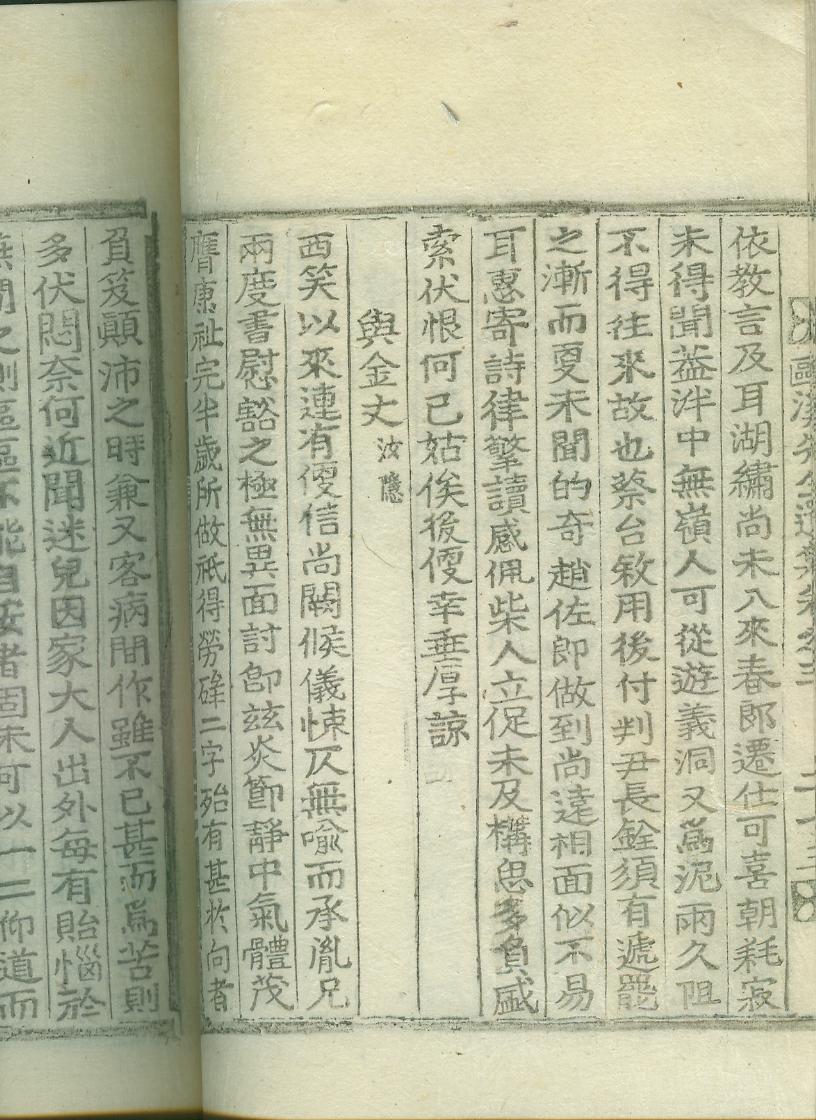 依教言及耳湖繡尚未入來春郎遷仕可喜朝耗寂
未得聞益泮中無嶺人可從遊義洞又爲泥雨久阻
不得往來故也蔡台敘用後付判尹長銓須有遞罷
之漸而更未聞的奇趙佐郎做到尚遠相面似不易
耳惠寄詩律擎讀感佩柴人立促未及構思多負盛
索伏恨何已姑俟後便幸垂厚諒
與金丈汝隱
西笑以來連有便信尚闕候儀悚仄無喩而承胤兄
兩度書慰豁之極無異面討卽玆炎節靜中氣體茂
膺康祉完半歲所做祇得勞碌二字殆有甚於向者
負笈顚沛之時兼又客病間作雖不已甚而爲苦則
多伏悶奈何近聞迷兒因家大人出外每有貽惱於
之側區區不能自安者固未可以一二仰道而